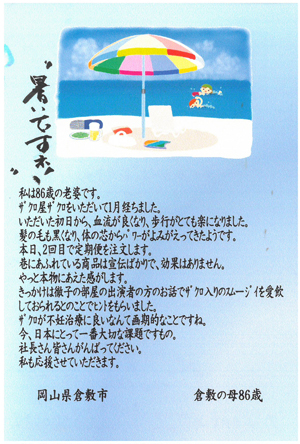 暑いですネ
私は86歳の老婆です。
ザクロ屋ザクロをいただいて1月経ちました。
いただいた初日から、血流が良くなり、歩行がとても楽になりました。
髪の毛も黒くなり、体の芯からパワーがよみがえってきたようです。
本日、2回目で定期便を注文します。
巷にあふれている商品は宣伝ばかりで、効果はありません。
やっと本物にあえた感がします。
きっかけは徹子の部屋の出演者の方のお話でザクロ入りのスムージィを愛飲
しておられるとのことでヒントをもらいました。
ザクロが不妊治療に良いなんて画期的なことですね。
今、日本にとって一番大切な課題ですもの。
社長さん皆さんがんばってください。
私も応援させていただきます。
岡山県倉敷市 倉敷の母86歳